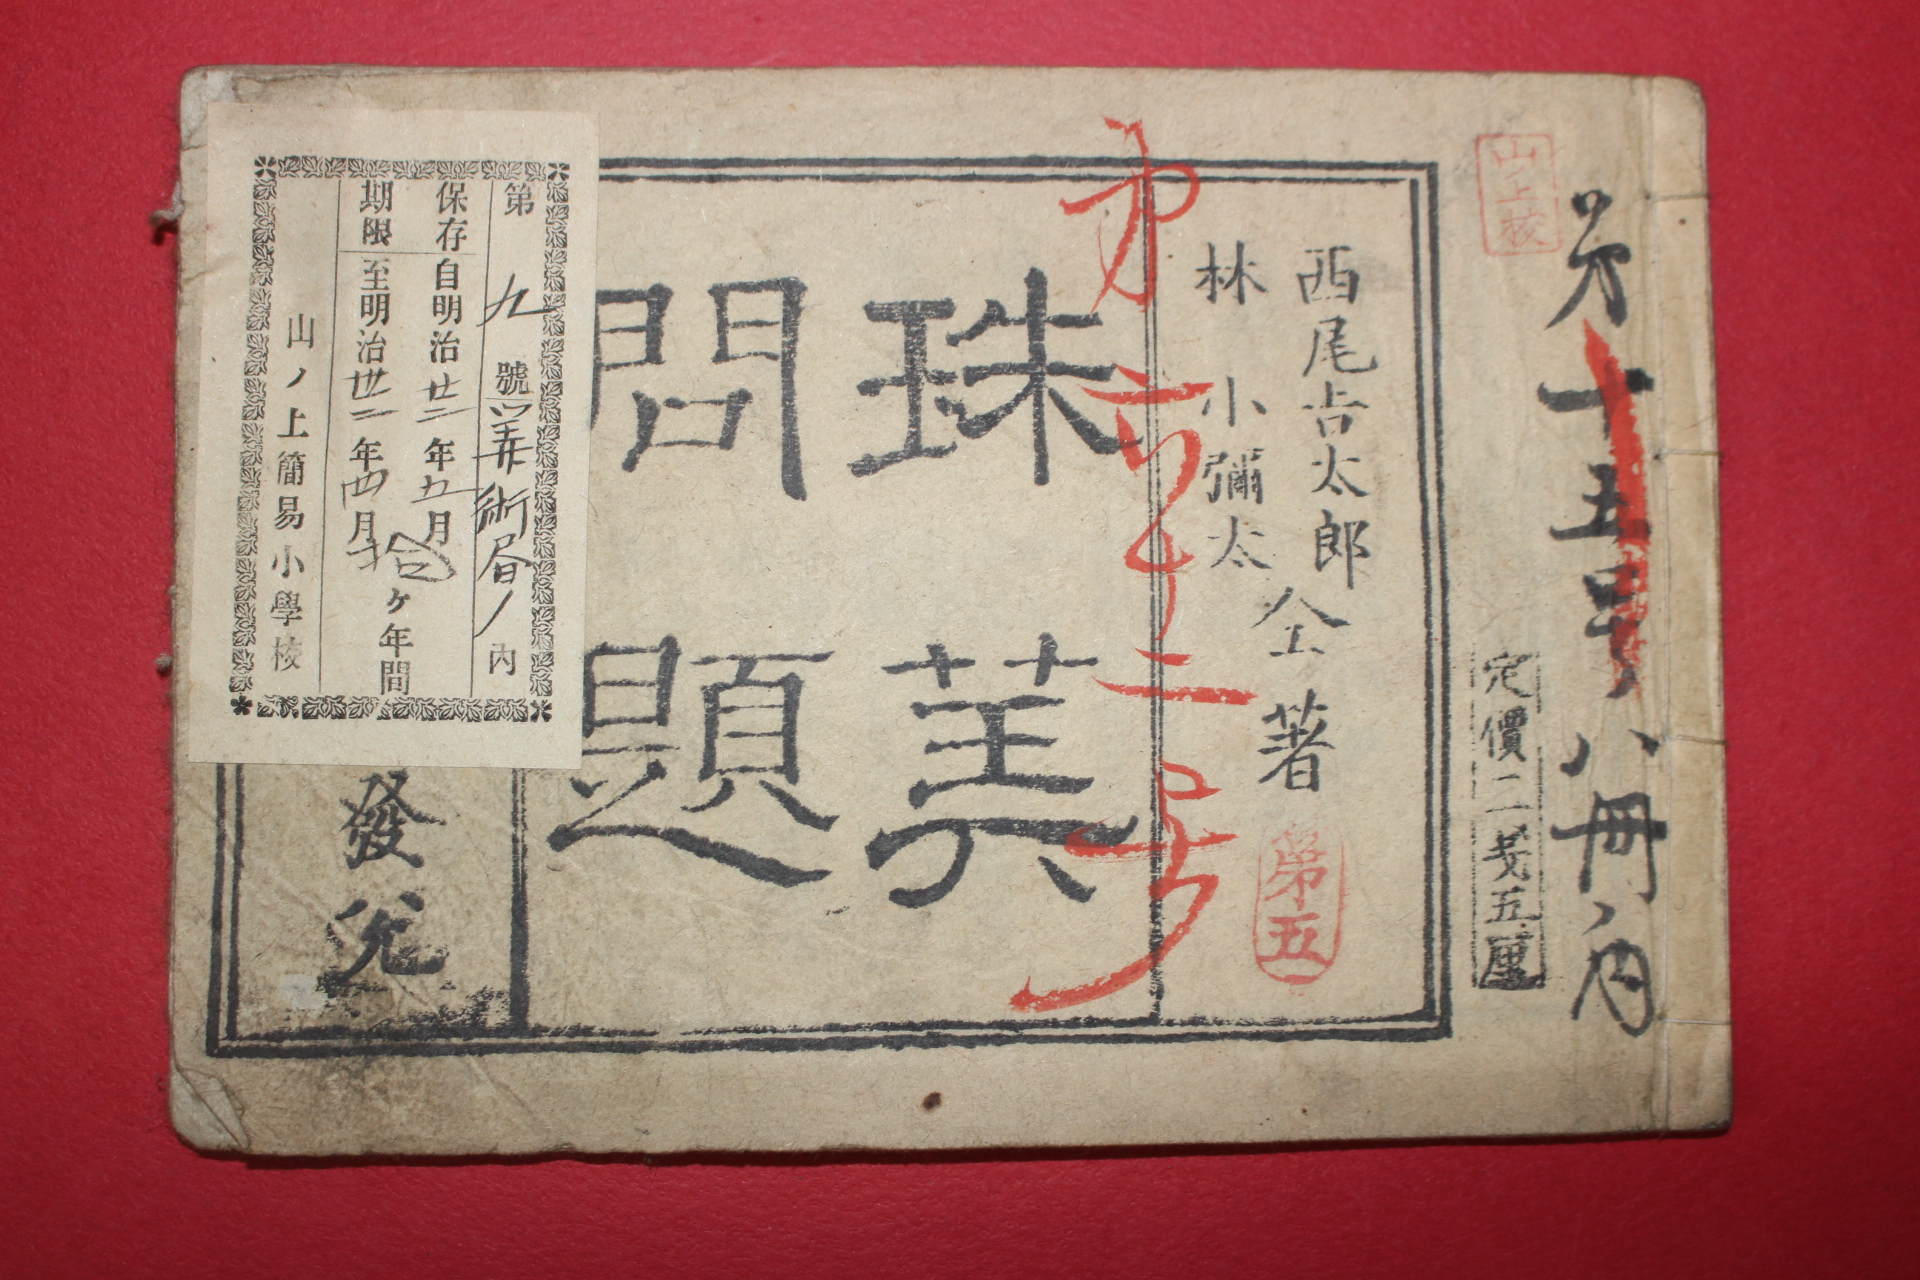 第十五号八冊ノ内
山上校
定價二戔五厘
西尾吉太郎
林小彌太
仝著
第五
珠筭
問題
發兌
第九號筭術書ノ内
保存期限
自明治廿二年五月
至明治卅二年四月
拾ヶ年間
山ノ上簡易小學校